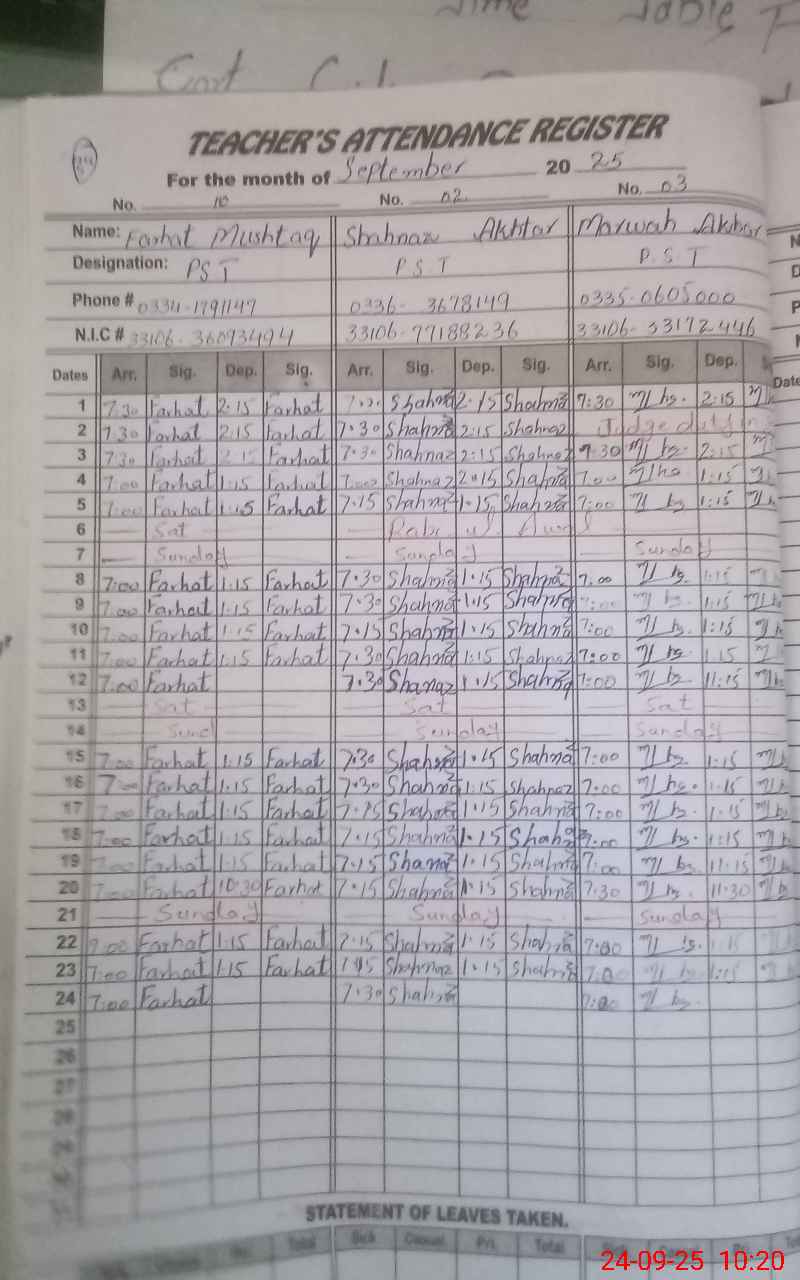 Time Table
TEACHER'S ATTENDANCE REGISTER
For the month of September 2025
No. No. 02 No. 03
Name: Farhat Mushtaq Shahnaz Akhtar Marwah Akbar
Designation: PST P S T P. S T
Phone # 0334-1791147 0336- 3678149 0335-0605000
N.I.C # 33106-36093494 33106-77188236 33106-33172446
Dates Arr. Sig. Dep. Sig. Arr. Sig. Dep. Sig. Arr. Sig. Dep.
1 7:30 Farhat 2:15 Farhat Shahnaz 2:15 Shahnaz 7:30 2:15
2 7:30 Farhat 2:15 Farhat 7:30 Shahnaz 2:15 Shahnaz
3 7:30 Farhat 2:15 Farhat 7:30 Shahnaz 2:15 Shahnaz 7:30 2:15
4 7:00 Farhat 1:15 Farhat 7:00 Shahnaz 2:15 Shahnaz 7:00 1:15
5 7:00 Farhat 1:15 Farhat 7:15 Shahnaz 1:15 Shahnaz 7:00 1:15
6 Sat
7 Sunday Sunday Sunday
8 7:00 Farhat 1:15 Farhat 7:30 Shahnaz 1:15 Shahnaz 7:00 1:15
9 7:00 Farhat 1:15 Farhat 7:30 Shahnaz 1:15 Shahnaz 7:00 1:15
10 7:00 Farhat 1:15 Farhat 7:15 Shahnaz 1:15 Shahnaz 7:00 1:15
11 7:00 Farhat 1:15 Farhat 7:30 Shahnaz 1:15 Shahnaz 7:00 1:15
12 7:00 Farhat 7:30 Shanaz 1:15 Shahnaz 7:00 11:15
13 Sat Sat Sat
14 Sund Sunday Sunday
15 7:00 Farhat 1:15 Farhat 7:30 Shahnaz 1:15 Shahnaz 7:00 1:15
16 7:00 Farhat 1:15 Farhat 7:30 Shahnaz 1:15 Shahnaz 7:00 1:15
17 7:00 Farhat 1:15 Farhat 7:15 Shahnaz 1:15 Shahnaz 7:00 1:15
18 7:00 Farhat 1:15 Farhat 7:15 Shahnaz 1:15 Shahnaz 7:00 1:15
19 7:00 Farhat 1:15 Farhat 7:15 Shanaz 1:15 Shahnaz 7:00 11:15
20 7:00 Farhat 10:30 Farhat 7:15 Shahnaz 1:15 Shahnaz 7:30 11:30
21 Sunday Sunday Sunday
22 7:00 Farhat 1:15 Farhat 7:15 Shahnaz 1:15 Shahnaz 7:00 1:15
23 7:00 Farhat 1:15 Farhat Shahnaz 1:15 Shahnaz 7:00 1:15
24 7:00 Farhat 7:30 Shahnaz 7:00
25
26
27
28
29
STATEMENT OF LEAVES TAKEN.
Total Sick Casual Pri. Total
24-09-25 10:20